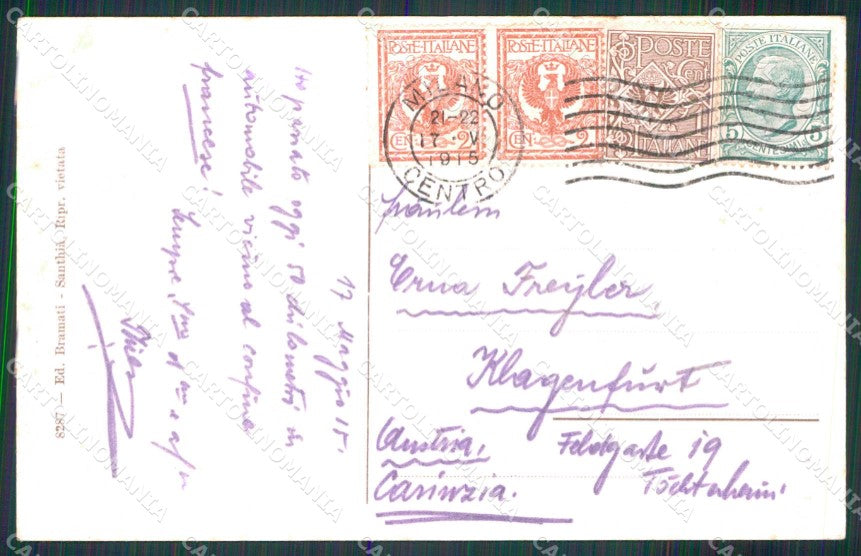 17 Maggio 15.
Ho passato oggi 50 chilometri in
automobile vicino al confine
francese!
Sempre
8287 — Ed. Bramati - Santhià, Ripr. vietata
POSTE·ITALIANE
CENT 2
POSTE·ITALIANE
CENT 2
POSTE
ITALIANE
POSTE ITALIANE
5 CENTESIMI 5
MILANO
21-22
17 · V
1915
CENTRO
Fräulein
Erna Freyler.
Klagenfurt
Austria, Feldgasse 19
Carinzia. Töchterheim
CARTOLINOMANIA